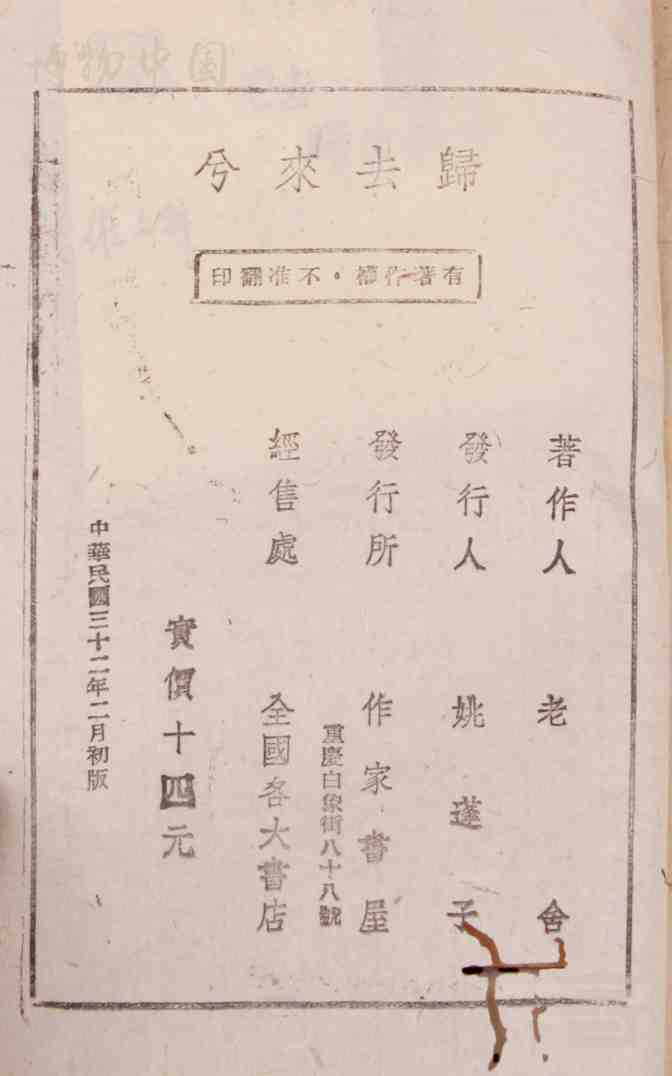 博物中国
歸去來兮
有著作權・不准翻印
著作人 老舍
發行人 姚蓬子
發行所 作家書屋
重慶白象街八十八號
經售處 全國各大書店
實價十四元
中華民國三十二年二月初版